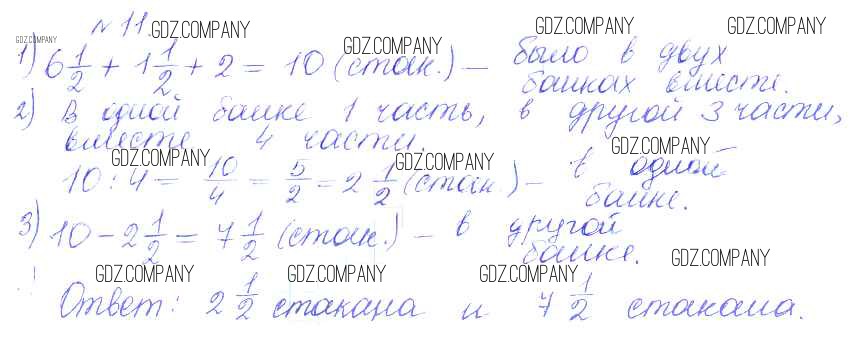 № 11. GDZ.COMPANY GDZ.COMPANY GDZ.COMPANY
GDZ.COMPANY GDZ.COMPANY
1) 6 1/2 + 1 1/2 + 2 = 10 (стак.) – было в двух
банках вместе.
2) В одной банке 1 часть, в другой 3 части,
вместе 4 части.
GDZ.COMPANY GDZ.COMPANY GDZ.COMPANY
10 : 4 = 10/4 = 5/2 = 2 1/2 (стак.) – в одной
банке.
3) 10 – 2 1/2 = 7 1/2 (стак.) – в другой
банке.
GDZ.COMPANY GDZ.COMPANY GDZ.COMPANY GDZ.COMPANY
Ответ: 2 1/2 стакана и 7 1/2 стакана.